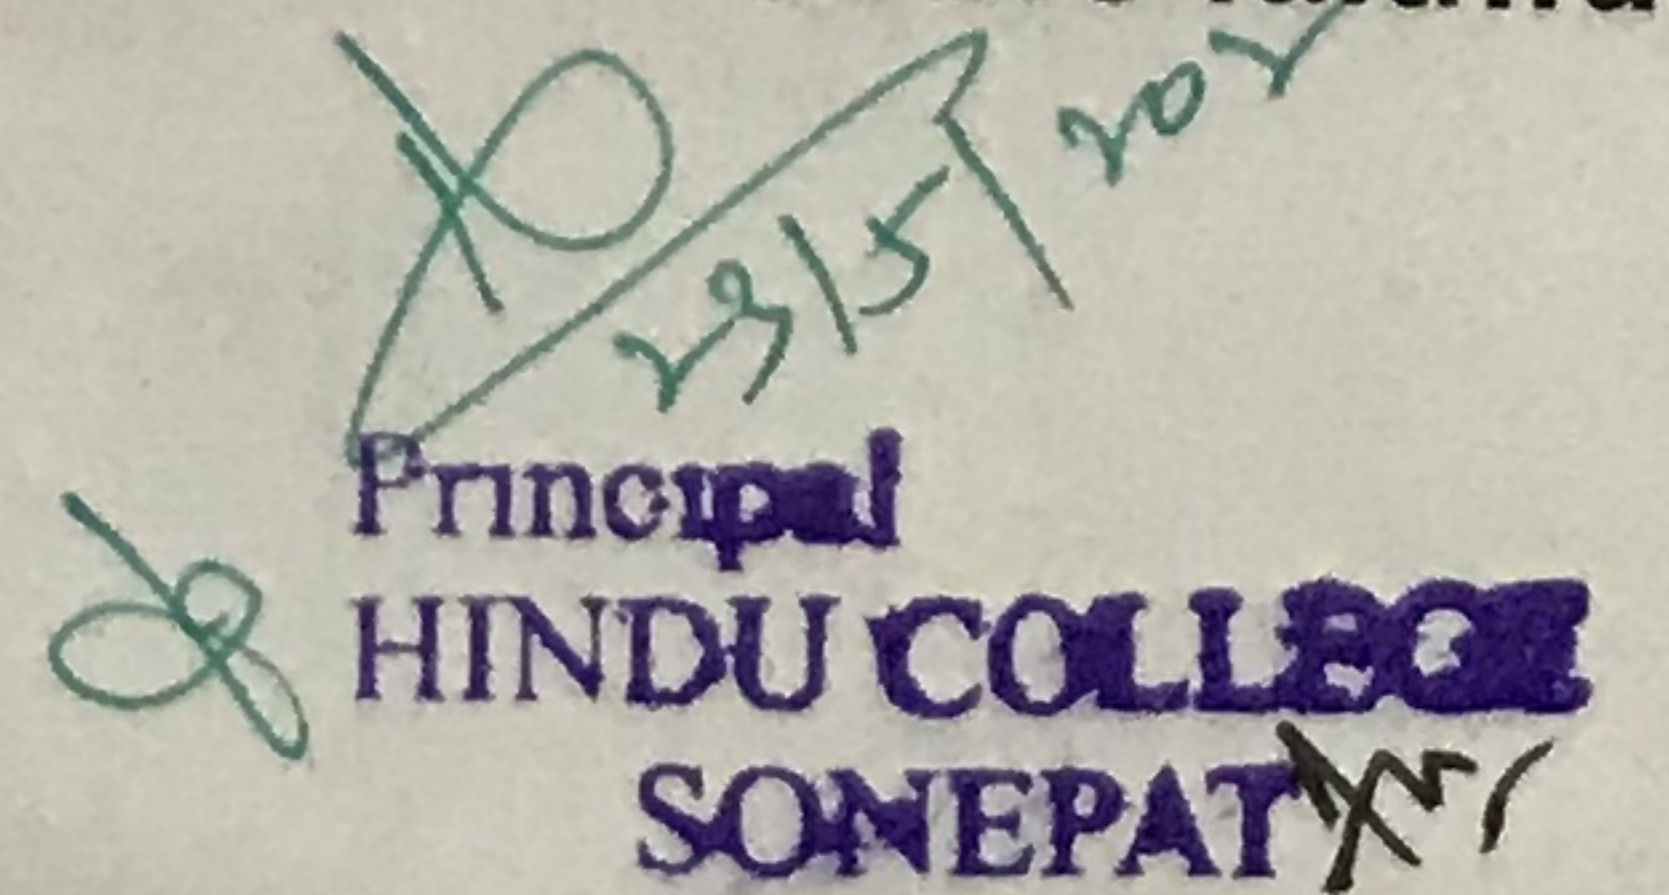 23/5/202
Principal
HINDU COLLEGE
SONEPAT